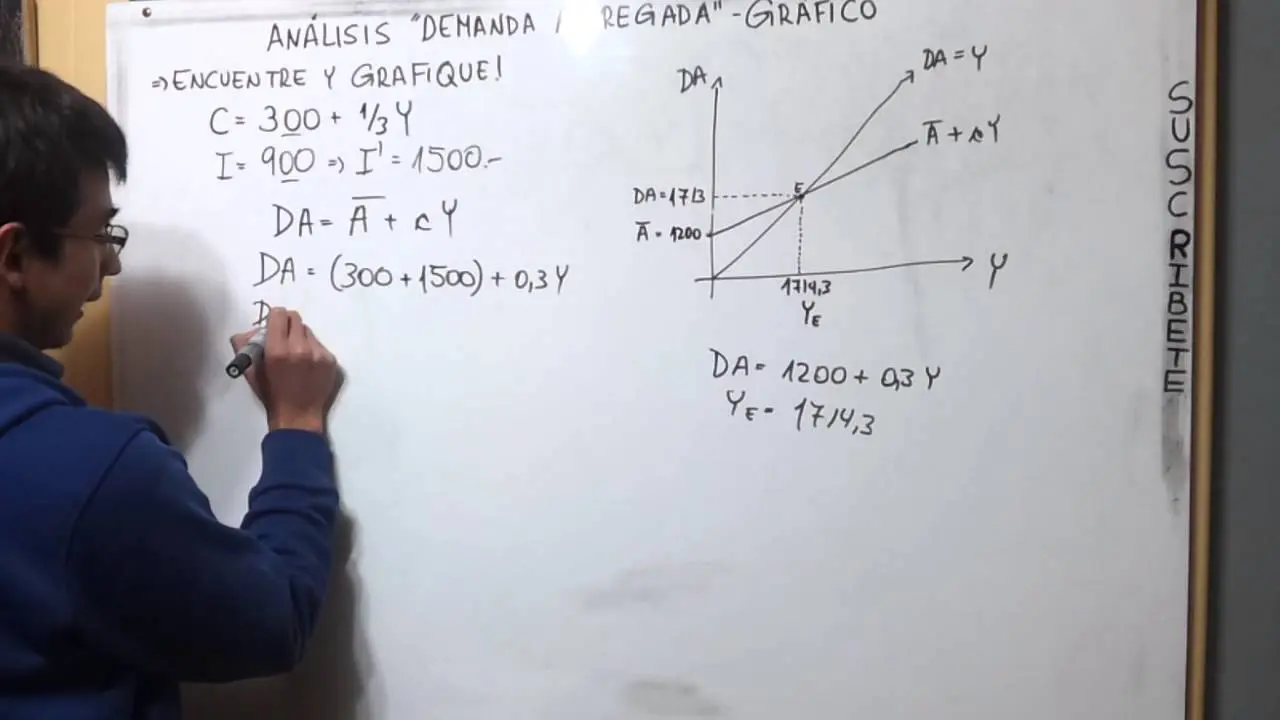 ANÁLISIS "DEMANDA REGADA" - GRÁFICO
⇒ ENCUENTRE Y GRAFIQUE!
C = 300 + 1/3 Y
I = 900 ⇒ I' = 1500.-
DA = A̅ + c Y
DA = (300 + 1500) + 0,3 Y
D
DA
DA = Y
A̅ + c Y
E
DA = 1713
A̅ = 1200
Y
1714,3
Y_E
DA = 1200 + 0,3 Y
Y_E = 1714,3
SUSCRIBETE